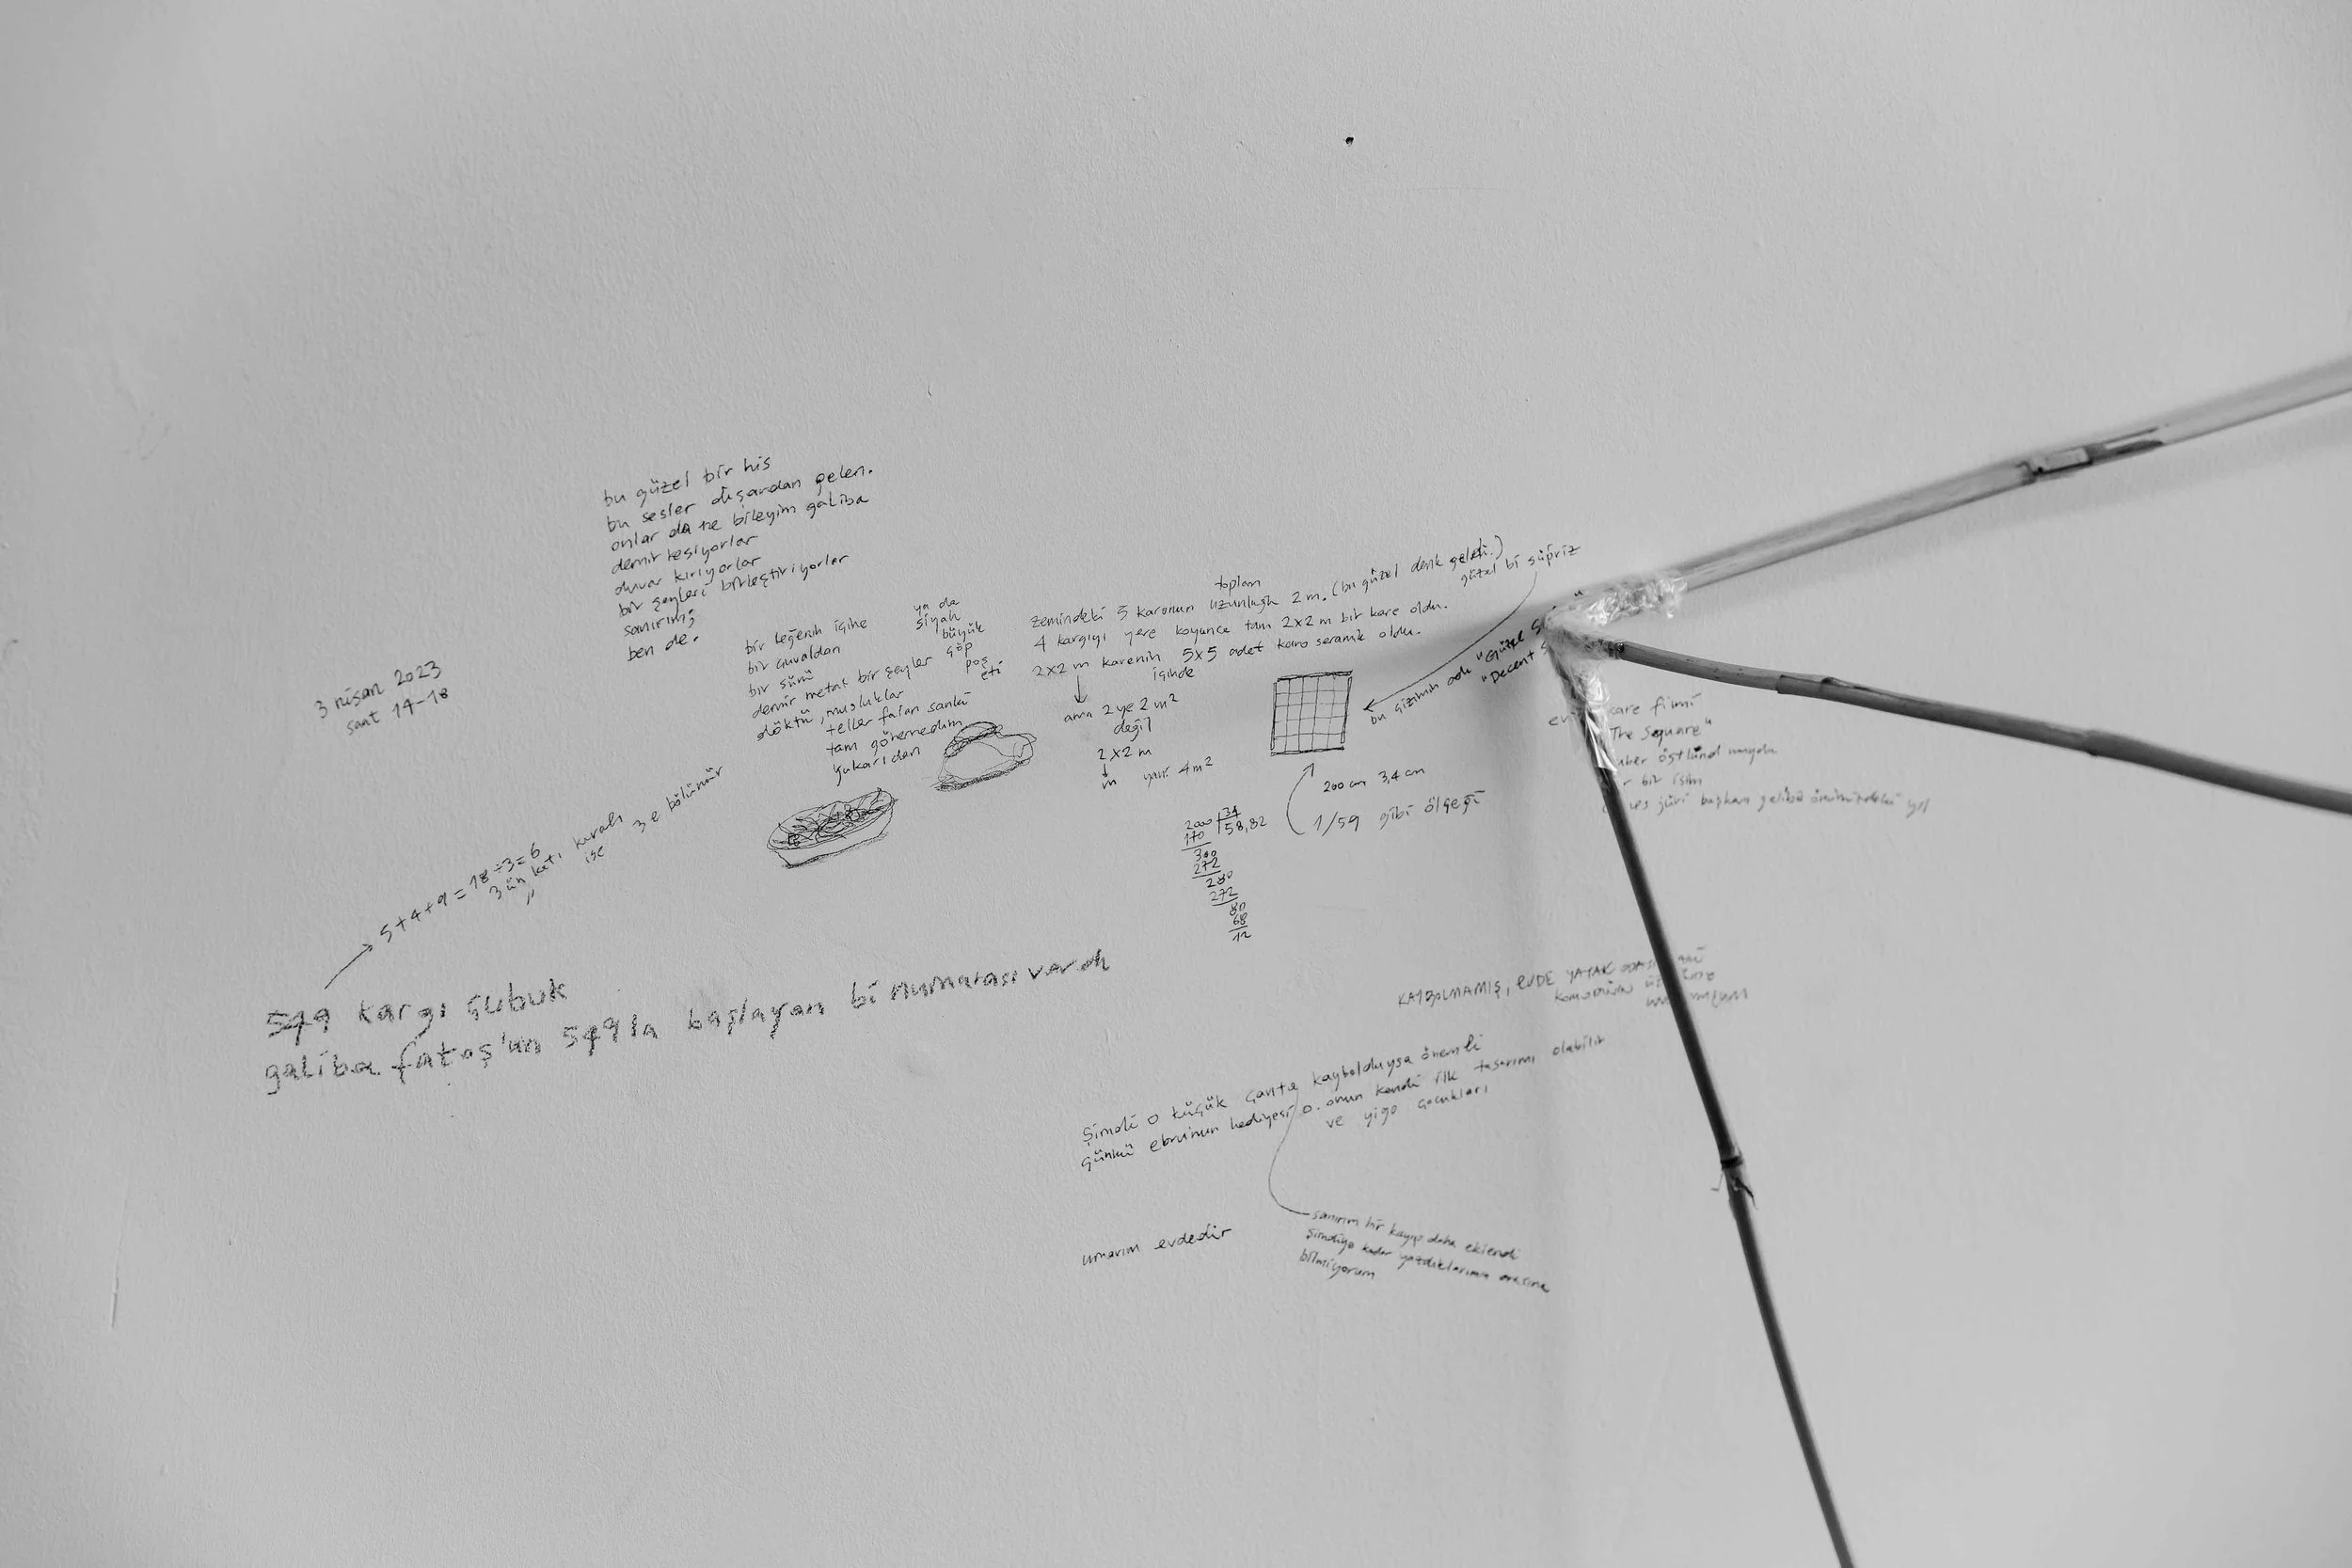 bu güzel bir his
bu sesler dışardan gelen.
onlar da ne bileyim galiba
demir kesiyorlar
duvar kırıyorlar
bir şeyleri birleştiriyorlar
sanırım;
ben de.
3 nisan 2023
saat 14-18
bir leğenin içine
bir çuvaldan
bir sürü
demir metal bir şeyler
döktü, musluklar
teller falan sanki
tam göremedim
yukarıdan
ya da
siyah
büyük
çöp
poş
eti
toplam
zemindeki 5 karonun uzunluğu 2 m. (bu güzel denk geldi.)
güzel bi süpriz
4 kargıyı yere koyunca tam 2x2 m bir kare oldu.
2x2 m karenin 5x5 adet karo seramik oldu.
içinde
ama 2 ye 2 m²
değil
2x2 m
m yani 4m²
bu çizimin adı "Güzel
"Decent
200 cm 3,4 cm
1/59 gibi ölçeği
2000 34
170 58,82
300
272
280
272
80
68
12
kare filmi
"The Square"
östlund
bir isim
jüri başkan
5+4+9=18÷3=6
3 ün katı kuralı
" ise 3 e bölünür
549 kargı çubuk
galiba fatoş'un 549 la başlayan bi numarası vardı
KAYBOLMAMIŞ, EVDE YATAK
Şimdi o küçük çanta kaybolduysa önemli
çünkü ebru'nun hediyesi o. onun kendi ilk tasarımı olabilir
ve yigo çocukları
umarım evdedir
sanırım bir kayıp daha eklendi
şimdiye kadar yazdıklarımın arasına
bilmiyorum